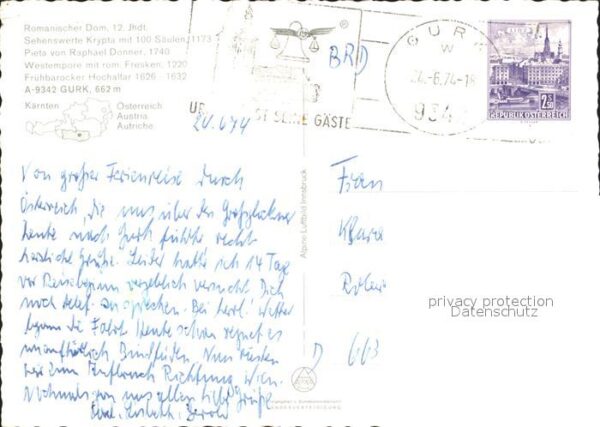 Romanischer Dom, 12. Jhdt.
Sehenswerte Krypta mit 100 Säulen, 1173
Pieta von Raphael Donner, 1740
Westempore mit rom. Fresken, 1220
Frühbarocker Hochaltar 1626 - 1632
A-9342 GURK, 662 m
Kärnten
Österreich
Austria
Autriche
BRD
GURK
24.-6.74-18
934
SEINE GÄSTE
2.50
REPUBLIK ÖSTERREICH
24.6.74
Von großer Ferienreise durch
Österreich, die uns über den Großglockner
heute nach Gurk führte recht
herzliche Grüße. Leider hatte ich 14 Tage
vor Reisebeginn vergeblich versucht Dich
noch telef. zu sprechen. Bei herrl. Wetter
begann die Fahrt. Heute schon regnet es
unaufhörlich Bindfäden. Nun rüsten
wir zum Aufbruch Richtung Wien.
Nochmals von uns allen liebe Grüße
Frau
Klara
D 663
Alpine Luftbild Innsbruck
privacy protection
Datenschutz